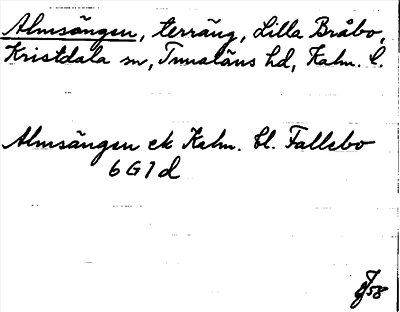 Almsängen, terräng, Lilla Bråbo,
Kristdala sn, Tunaläns hd, Kalm. l.
Almsängen ek Kalm. bl. Fallebo
6 G 1 d
58